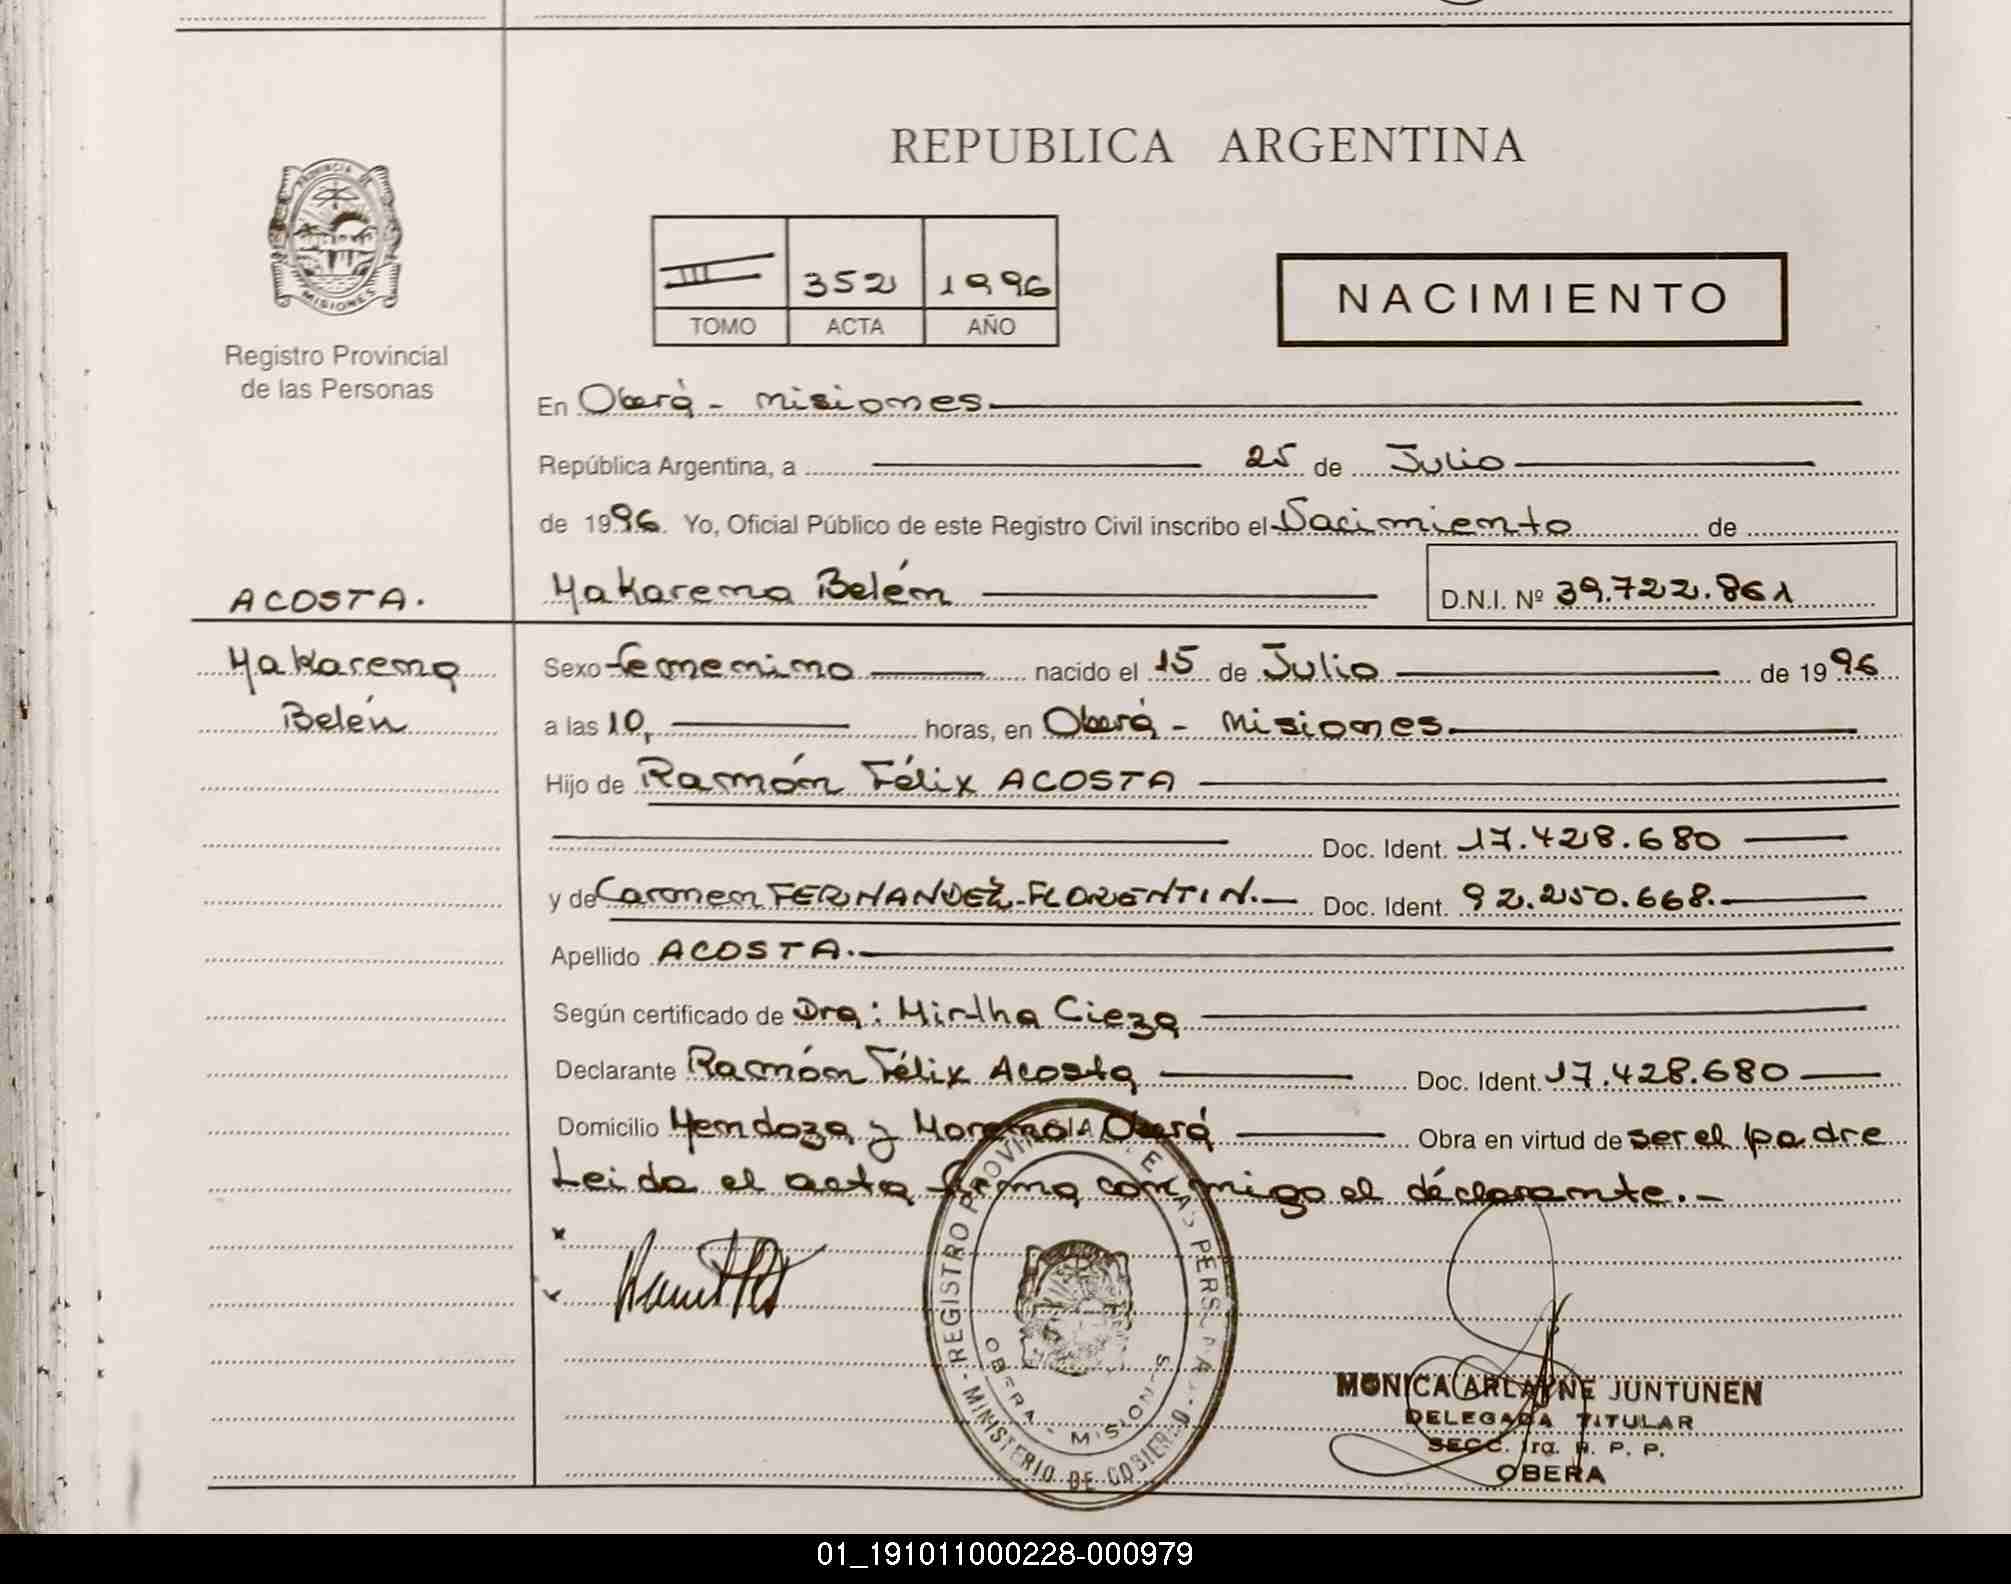 PROVINCIA DE
MISIONES
Registro Provincial
de las Personas
REPUBLICA ARGENTINA
III 352 1996
TOMO ACTA AÑO
NACIMIENTO
En Oberá - Misiones
República Argentina, a 25 de Julio
de 1996. Yo, Oficial Público de este Registro Civil inscribo el Nacimiento de
ACOSTA. Makarena Belén D.N.I. Nº 39.722.861
Makarena Sexo femenino nacido el 15 de Julio de 1996
Belén a las 10, horas, en Oberá - Misiones.
Hijo de Ramón Félix ACOSTA
Doc. Ident. 17.428.680
y de Carmen FERNANDEZ-FLORENTIN.- Doc. Ident. 92.250.668.-
Apellido ACOSTA.-
Según certificado de Dra: Mirtha Cieza
Declarante Ramón Félix Acosta Doc. Ident. 17.428.680
Domicilio Mendoza y Moreno Oberá Obra en virtud de ser el padre
Leida el acta firma conmigo el declarante.-
REGISTRO PROVINCIAL DE LAS PERSONAS
- MINISTERIO DE GOBIERNO -
OBERA - MISIONES
MONICA ARLAYNE JUNTUNEN
DELEGADA TITULAR
SECC. 1ra. R. P. P.
OBERA
01_191011000228-000979